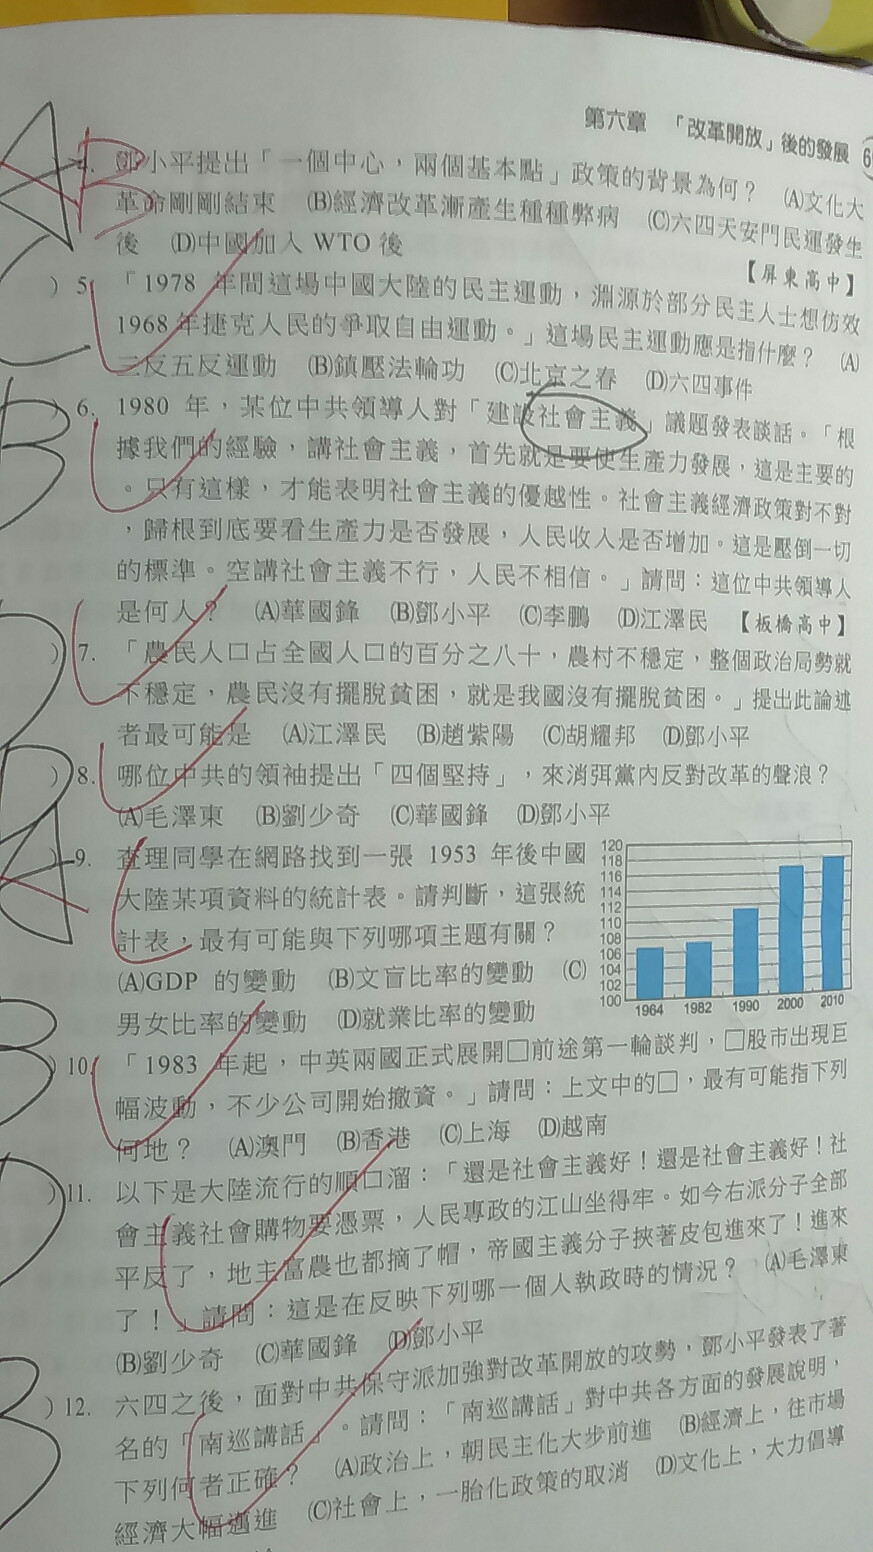 第六章 「改革開放」後的發展 6
A B
4. 鄧小平提出「一個中心，兩個基本點」政策的背景為何？ (A)文化大
革命剛剛結束 (B)經濟改革漸產生種種弊病 (C)六四天安門民運發生
後 (D)中國加入 WTO 後
【屏東高中】
C
) 5. 「1978 年間這場中國大陸的民主運動，淵源於部分民主人士想仿效
1968 年捷克人民的爭取自由運動。」這場民主運動應是指什麼？ (A)
三反五反運動 (B)鎮壓法輪功 (C)北京之春 (D)六四事件
B
) 6. 1980 年，某位中共領導人對「建設社會主義」議題發表談話。「根
據我們的經驗，講社會主義，首先就是要使生產力發展，這是主要的
。只有這樣，才能表明社會主義的優越性。社會主義經濟政策對不對
，歸根到底要看生產力是否發展，人民收入是否增加。這是壓倒一切
的標準。空講社會主義不行，人民不相信。」請問：這位中共領導人
是何人？ (A)華國鋒 (B)鄧小平 (C)李鵬 (D)江澤民 【板橋高中】
D
) 7. 「農民人口占全國人口的百分之八十，農村不穩定，整個政治局勢就
不穩定，農民沒有擺脫貧困，就是我國沒有擺脫貧困。」提出此論述
者最可能是 (A)江澤民 (B)趙紫陽 (C)胡耀邦 (D)鄧小平
D
) 8. 哪位中共的領袖提出「四個堅持」，來消弭黨內反對改革的聲浪？
(A)毛澤東 (B)劉少奇 (C)華國鋒 (D)鄧小平
A
) 9. 查理同學在網路找到一張 1953 年後中國
大陸某項資料的統計表。請判斷，這張統
計表，最有可能與下列哪項主題有關？
(A)GDP 的變動 (B)文盲比率的變動 (C)
男女比率的變動 (D)就業比率的變動
120
118
116
114
112
110
108
106
104
102
100
1964 1982 1990 2000 2010
B
) 10. 「1983 年起，中英兩國正式展開□前途第一輪談判，□股市出現巨
幅波動，不少公司開始撤資。」請問：上文中的□，最有可能指下列
何地？ (A)澳門 (B)香港 (C)上海 (D)越南
D
) 11. 以下是大陸流行的順口溜：「還是社會主義好！還是社會主義好！社
會主義社會購物要憑票，人民專政的江山坐得牢。如今右派分子全部
平反了，地主富農也都摘了帽，帝國主義分子挾著皮包進來了！進來
了！」請問：這是在反映下列哪一個人執政時的情況？ (A)毛澤東
(B)劉少奇 (C)華國鋒 (D)鄧小平
B
) 12. 六四之後，面對中共保守派加強對改革開放的攻勢，鄧小平發表了著
名的「南巡講話」。請問：「南巡講話」對中共各方面的發展說明，
下列何者正確？ (A)政治上，朝民主化大步前進 (B)經濟上，往市場
經濟大幅邁進 (C)社會上，一胎化政策的取消 (D)文化上，大力倡導